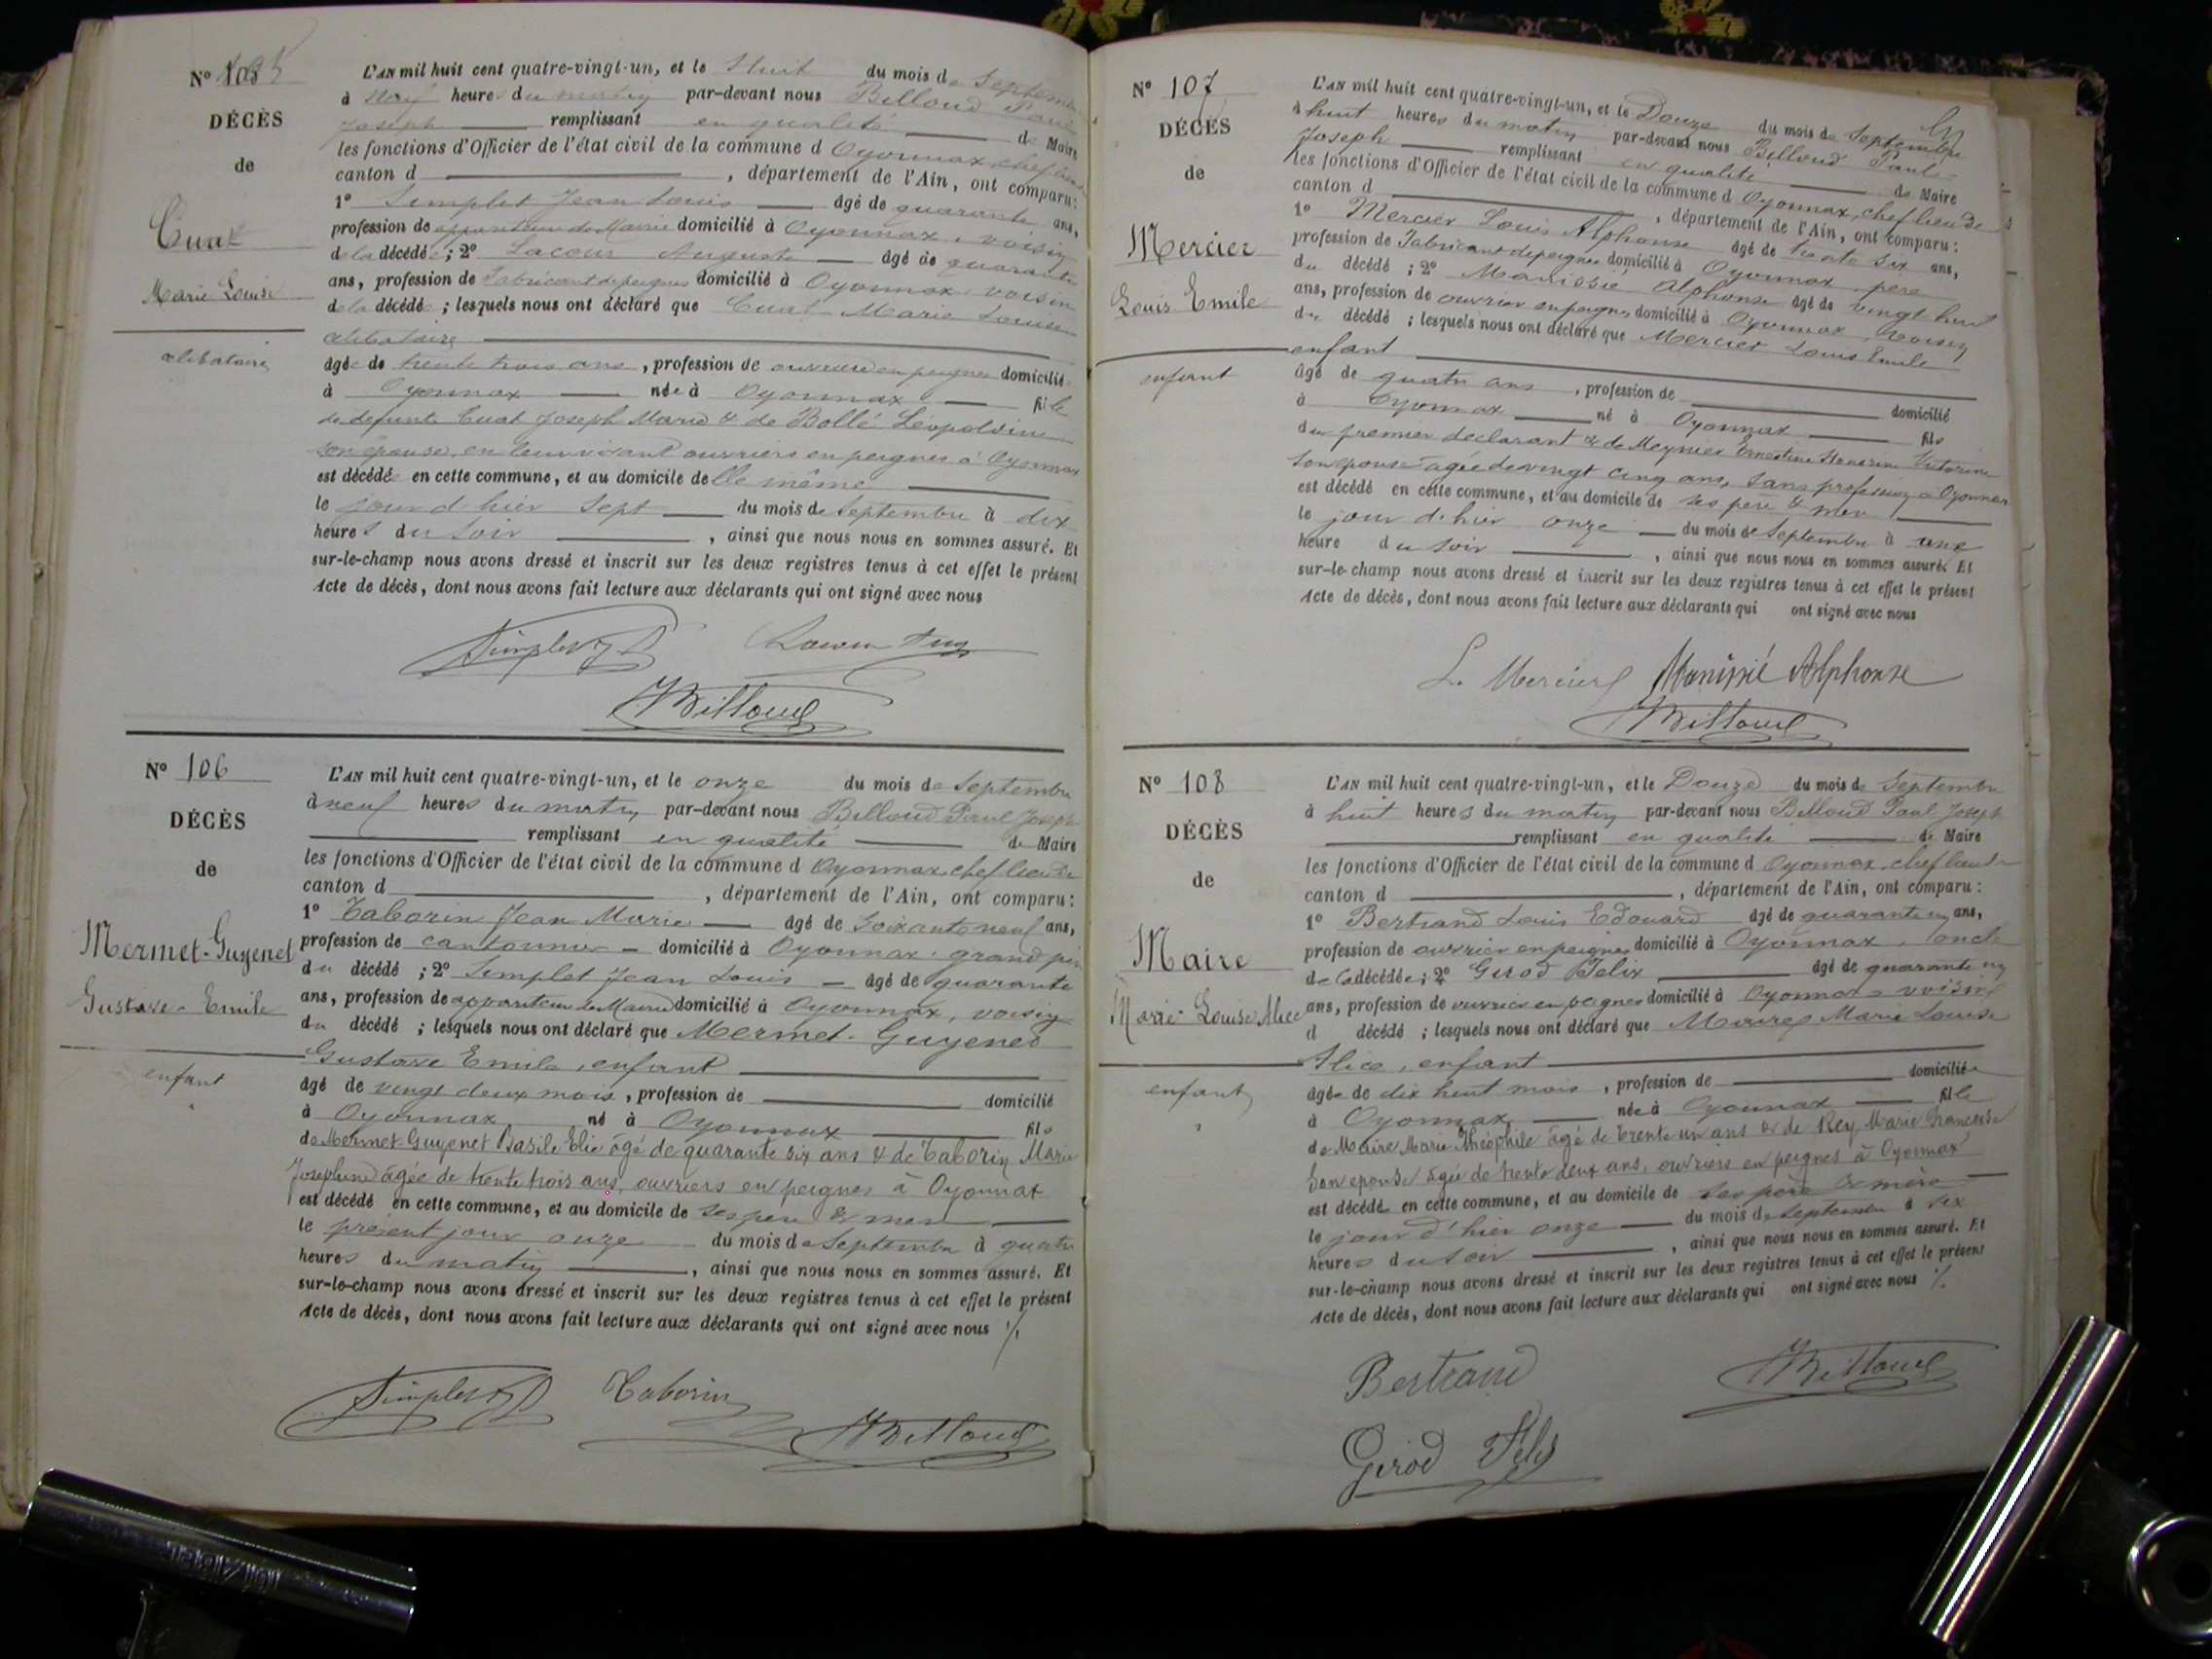 N° 105
DÉCÈS
de
Cuat
Marie Louise
célibataire
L'AN mil huit cent quatre-vingt-un, et le Huit du mois de Septembre
à Neuf heures du matin par-devant nous Billoud Paul
Joseph remplissant en qualité de Maire
les fonctions d'Officier de l'état civil de la commune d Oyonnax, chef lieu de
canton d , département de l'Ain, ont comparu:
1° Simplet Jean Louis âgé de quarante ans,
profession de appariteur de Mairie domicilié à Oyonnax, voisin
de la décédée; 2° Lacour Auguste âgé de quarante
ans, profession de fabricant de peignes domicilié à Oyonnax voisin
de la décédée; lesquels nous ont déclaré que Cuat Marie Louise
célibataire
âgée de trente trois ans, profession de ouvrière en peignes domiciliée
à Oyonnax née à Oyonnax fille
de defunts Cuat Joseph Marie & de Bollé Léopoldine
son épouse, en leur vivant ouvriers en peignes à Oyonnax
est décédée en cette commune, et au domicile delle même
le jour d'hier sept du mois de Septembre à dix
heures du soir , ainsi que nous nous en sommes assuré. Et
sur-le-champ nous avons dressé et inscrit sur les deux registres tenus à cet effet le présent
Acte de décès, dont nous avons fait lecture aux déclarants qui ont signé avec nous
Simplet JL Lacour Aug
Billoud
N° 106
DÉCÈS
de
Mermet-Guyenet
Gustave-Emile
enfant
L'AN mil huit cent quatre-vingt-un, et le onze du mois de Septembre
à neuf heures du matin par-devant nous Billoud Paul Joseph
remplissant en qualité de Maire
les fonctions d'Officier de l'état civil de la commune d Oyonnax, chef lieu de
canton d , département de l'Ain, ont comparu:
1° Taborin Jean Marie âgé de Soixante neuf ans,
profession de cantonnier domicilié à Oyonnax, grand père
du décédé; 2° Simplet Jean Louis âgé de quarante
ans, profession de appariteur de Mairie domicilié à Oyonnax, voisin
du décédé; lesquels nous ont déclaré que Mermet-Guyenet
Gustave Emile, enfant
âgé de vingt deux mois, profession de domicilié
à Oyonnax né à Oyonnax fils
de Mermet-Guyenet Basile Elie âgé de quarante six ans & de Taborin Marie
Josephine âgée de trente trois ans, ouvriers en peignes à Oyonnax
est décédé en cette commune, et au domicile de ses père & mère
le présent jour onze du mois de Septembre à quatre
heures du matin , ainsi que nous nous en sommes assuré. Et
sur-le-champ nous avons dressé et inscrit sur les deux registres tenus à cet effet le présent
Acte de décès, dont nous avons fait lecture aux déclarants qui ont signé avec nous
Simplet JL Taborin
Billoud
N° 107
DÉCÈS
de
Mercier
Louis Emile
enfant
L'AN mil huit cent quatre-vingt-un, et le Douze du mois de Septembre
à huit heures du matin par-devant nous Billoud Paul
Joseph remplissant en qualité de Maire
les fonctions d'Officier de l'état civil de la commune d Oyonnax, chef lieu de
canton d , département de l'Ain, ont comparu:
1° Mercier Louis Alphonse âgé de trente six ans,
profession de fabricant de peignes domicilié à Oyonnax, père
du décédé; 2° Manissié Alphonse âgé de vingt huit
ans, profession de ouvrier en peignes domicilié à Oyonnax, voisin
du décédé; lesquels nous ont déclaré que Mercier Louis Emile
enfant
âgé de quatre ans, profession de domicilié
à Oyonnax né à Oyonnax fils
du premier déclarant & de Meynier Ernestine Honorine Victorine
son épouse âgée de vingt cinq ans, sans profession à Oyonnax
est décédé en cette commune, et au domicile de ses père & mère
le jour d'hier onze du mois de Septembre à une
heure du soir , ainsi que nous nous en sommes assuré. Et
sur-le-champ nous avons dressé et inscrit sur les deux registres tenus à cet effet le présent
Acte de décès, dont nous avons fait lecture aux déclarants qui ont signé avec nous
L. Mercier Manissié Alphonse
Billoud
N° 108
DÉCÈS
de
Maire
Marie-Louise Alice
enfant
L'AN mil huit cent quatre-vingt-un, et le Douze du mois de Septembre
à huit heures du matin par-devant nous Billoud Paul Joseph
remplissant en qualité de Maire
les fonctions d'Officier de l'état civil de la commune d Oyonnax, chef lieu de
canton d , département de l'Ain, ont comparu:
1° Bertrand Louis Edouard âgé de quarante un ans,
profession de ouvrier en peignes domicilié à Oyonnax, oncle
de la décédée; 2° Girod Félix âgé de quarante un
ans, profession de ouvrier en peignes domicilié à Oyonnax voisin
d décédé; lesquels nous ont déclaré que Maire Marie Louise
Alice, enfant
âgée de dix huit mois, profession de domiciliée
à Oyonnax née à Oyonnax fille
de Maire Marie Théophile âgé de trente un ans & de Rey Marie Françoise
son épouse âgée de trente deux ans, ouvriers en peignes à Oyonnax
est décédée en cette commune, et au domicile de ses père & mère
le jour d'hier onze du mois de Septembre à six
heures du soir , ainsi que nous nous en sommes assuré. Et
sur-le-champ nous avons dressé et inscrit sur les deux registres tenus à cet effet le présent
Acte de décès, dont nous avons fait lecture aux déclarants qui ont signé avec nous
Bertrand Billoud
Girod Felix